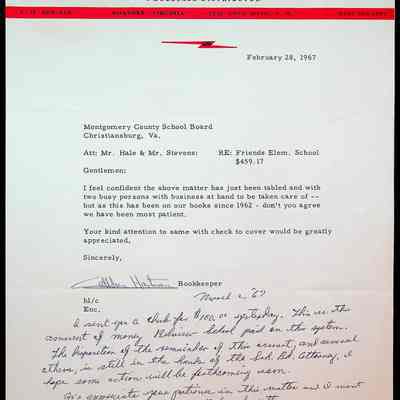 February 28, 1967
Montgomery County School Board
Christiansburg, Va.
Att: Mr. Hale & Mr. Stevens: RE: Friends Elem. School
$459.17
Gentlemen:
I feel confident the above matter has just been tabled and with
two busy persons with business at hand to be taken care of --
but as this has been on our books since 1962 - don't you agree
we have been most patient.
Your kind attention to same with check to cover would be greatly
appreciated,
Sincerely,
Bookkeeper
bl/c
Enc.
March 2, 67
I sent you a check for $100.00 yesterday. This is the
amount of money School paid on this system.
The disposition of the remainder of this account, and several
others, is still in the hands of the Sch. Bd. Attorney, I
hope some action will be forthcoming soon.
We appreciate your patience in this matter and I want